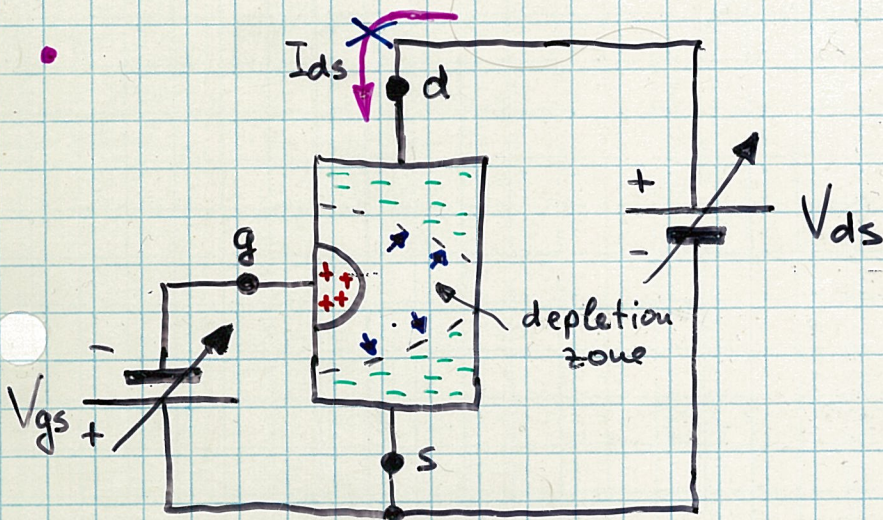 Ids
d
+
Vds
-
g
+ +
+ +
depletion
zone
-
Vgs
+
s